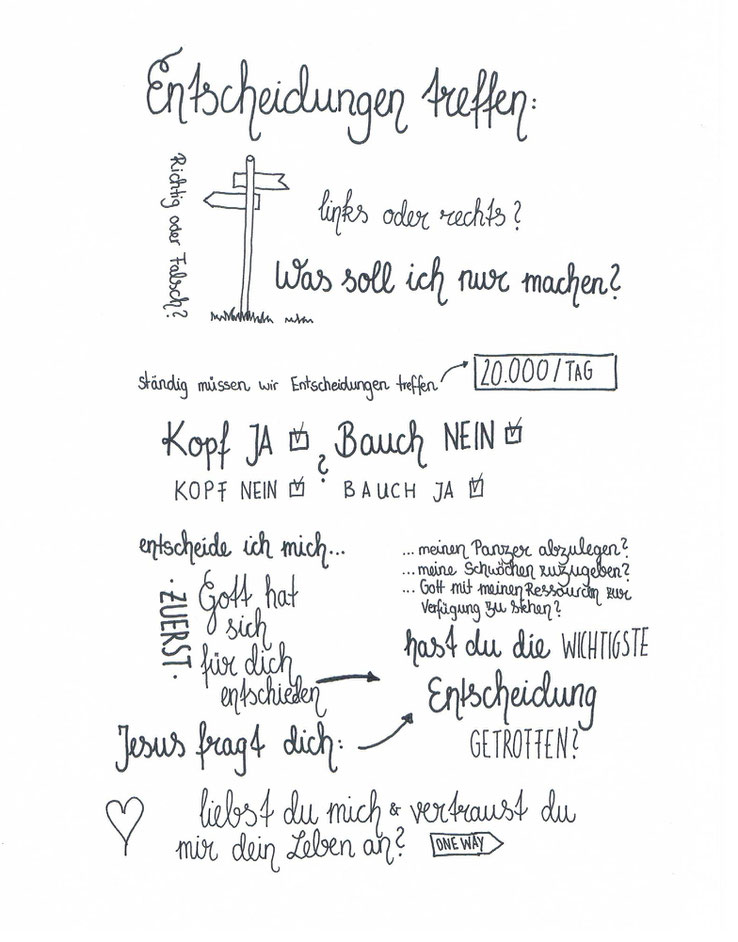 Entscheidungen treffen:
Richtig oder Falsch?
links oder rechts?
Was soll ich nur machen?
ständig müssen wir Entscheidungen treffen
20.000/TAG
Kopf JA Bauch NEIN
?
KOPF NEIN BAUCH JA
entscheide ich mich...
... meinen Panzer abzulegen?
... meine Schwächen zuzugeben?
... Gott mit meinen Ressourcen zur
Verfügung zu stehen?
·ZUERST·
Gott hat
sich
für dich
entschieden
hast du die WICHTIGSTE
Entscheidung
GETROFFEN?
Jesus fragt dich:
liebst du mich & vertraust du
mir dein Leben an?
ONE WAY